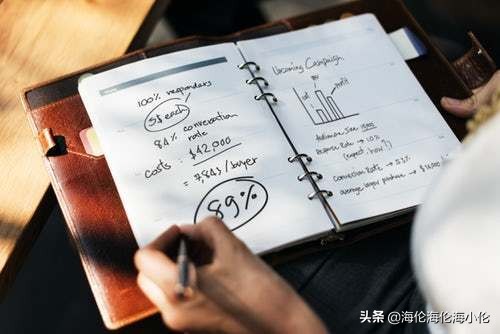 100% responders
5$ each
84% conversation
rate
costs: $42,000
= 7,84$/buyer
89%
Upcoming Campaign
profit
Audience Size
Response Rate →
(expect. how?)
Conversion Rate →
average buyer purchase →
头条 @海伦海伦海小伦